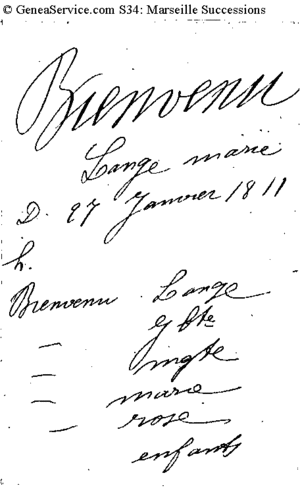 © GeneaService.com S34: Marseille Successions
Bienvenu
Lange marie
D. 27 Janvier 1811
h.
Bienvenu Lange
— J Bte
— mgte
— marie
— rose
enfants